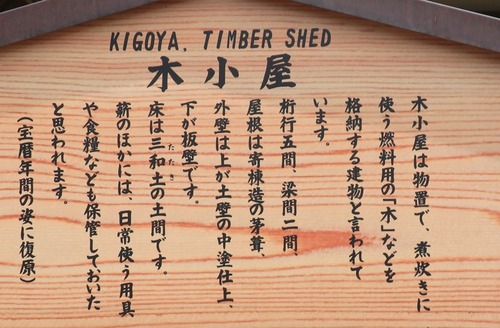 KIGOYA. TIMBER SHED
木小屋
木小屋は物置で、煮炊きに
使う燃料用の「木」などを
格納する建物と言われて
います。
桁行五間、梁間二間、
屋根は寄棟造の茅葺、
外壁は上が土壁の中塗仕上、
下が板壁です。
床は三和土の土間です。
たたき
薪のほかには、日常使う用具
や食糧なども保管しておいた
と思われます。
（宝暦年間の姿に復原）